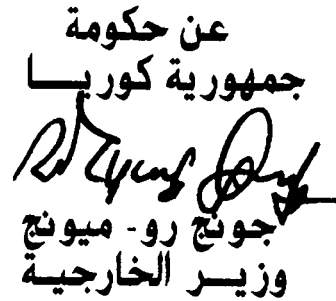 عن حكومة
جمهورية كوريــا
جونج رو- ميونج
وزيــر الخارجيــة